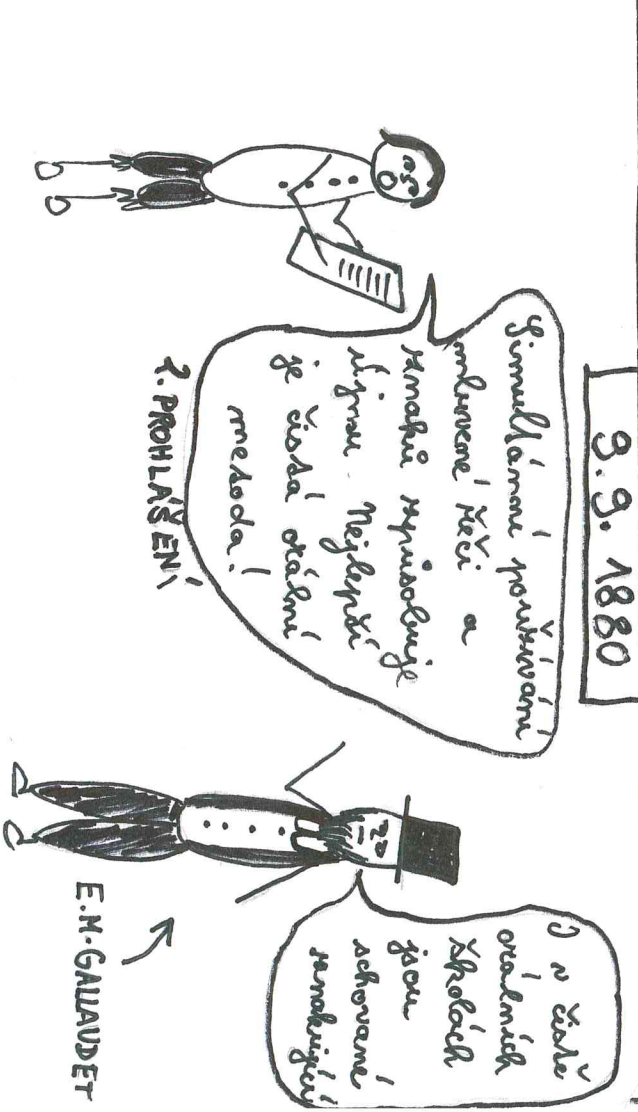 9.9. 1880
Simultánní používání
mluvené řeči a
znaků způsobuje
újmu. Nejlepší
je čistá orální
metoda!
2. PROHLÁŠENÍ
I v čistě
orálních
školách
jsou
schované
znakující
E.M.GALLAUDET